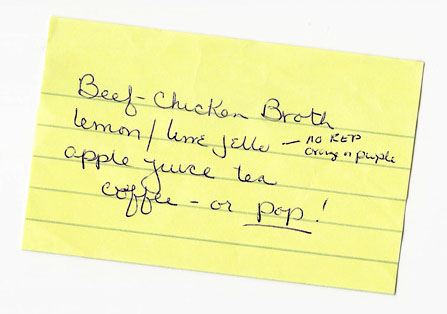 Beef-Chicken Broth
lemon/lime jello — NO RED
orang or purple
apple juice tea
coffee - or pop!